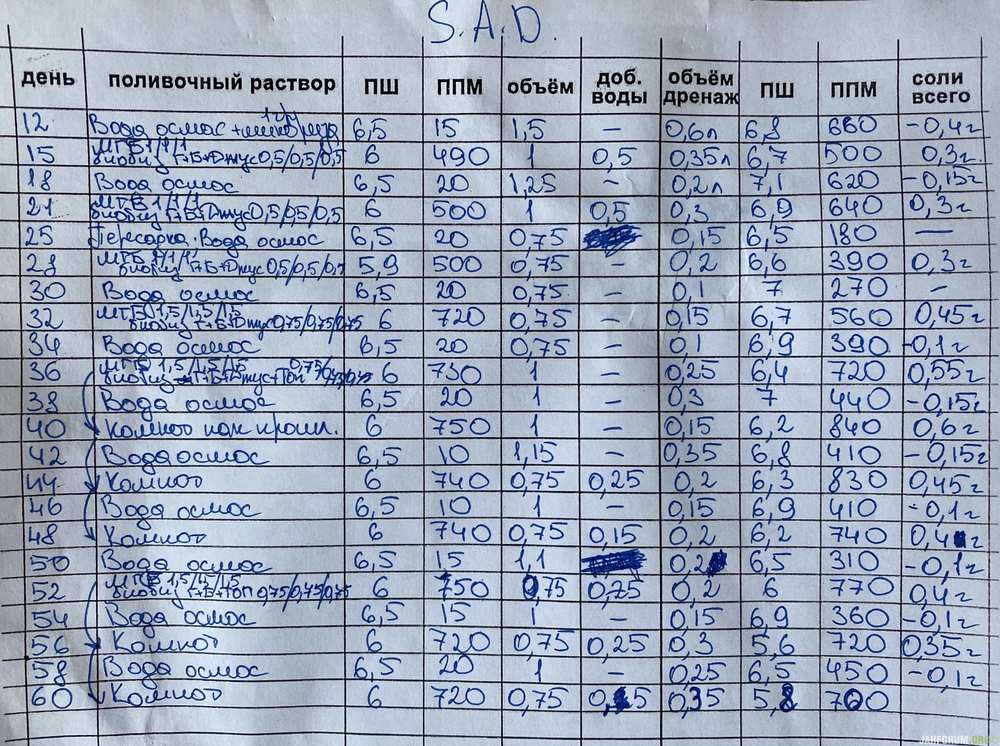 S.A.D.
день поливочный раствор ПШ ППМ объём доб. воды объём дренаж ПШ ППМ соли всего
12 Вода осмос + 6,5 15 1,5 – 0,6л 6,8 660 -0,4г
15 МГБ 1/1/1 биобиз Г+Б+Джус 0,5/0,5/0,5 6 490 1 0,5 0,35л 6,7 500 0,3г
18 Вода осмос 6,5 20 1,25 – 0,2л 7,1 620 -0,15г
21 МГБ 1/1/1 биобиз Г+Б+Джус 0,5/0,5/0,5 6 500 1 0,5 0,3 6,9 640 0,3г
25 Пересадка. Вода осмос 6,5 20 0,75 0,15 6,5 180 —
28 МГБ биобиз Г+Б+Джус 0,5/0,5/0,5 5,9 500 0,75 – 0,2 6,6 390 0,3г
30 Вода осмос 6,5 20 0,75 – 0,1 7 270 –
32 МГБ 1,5/1,5/1,5 биобиз Г+Б+Джус 0,75/0,75/0,75 6 720 0,75 – 0,15 6,7 560 0,45г
34 Вода осмос 6,5 20 0,75 – 0,1 6,9 390 -0,1г
36 МГБ 1,5/1,5/1,5 биобиз Г+Б+Джус+Топ 6 730 1 – 0,25 6,4 720 0,55г
38 Вода осмос 6,5 20 1 – 0,3 7 440 -0,15г
40 Компот как прошл. 6 750 1 – 0,15 6,2 840 0,6г
42 Вода осмос 6,5 10 1,15 – 0,35 6,8 410 -0,15г
44 Компот 6 740 0,75 0,25 0,2 6,3 830 0,45г
46 Вода осмос 6,5 10 1 – 0,15 6,9 410 -0,1г
48 Компот 6 740 0,75 0,15 0,2 6,2 740 0,4г
50 Вода осмос 6,5 15 1,1 0,2 6,5 310 -0,1г
52 МГБ биобиз Г+Б+Топ 0,75/0,75/0,75 6 750 0,75 0,25 0,2 6 770 0,4г
54 Вода осмос 6,5 15 1 – 0,15 6,9 360 -0,1г
56 Компот 6 720 0,75 0,25 0,3 5,6 720 0,35г
58 Вода осмос 6,5 20 1 – 0,25 6,5 450 -0,1г
60 Компот 6 720 0,75 0,35 5,8 700
JAHFORUM.ORG